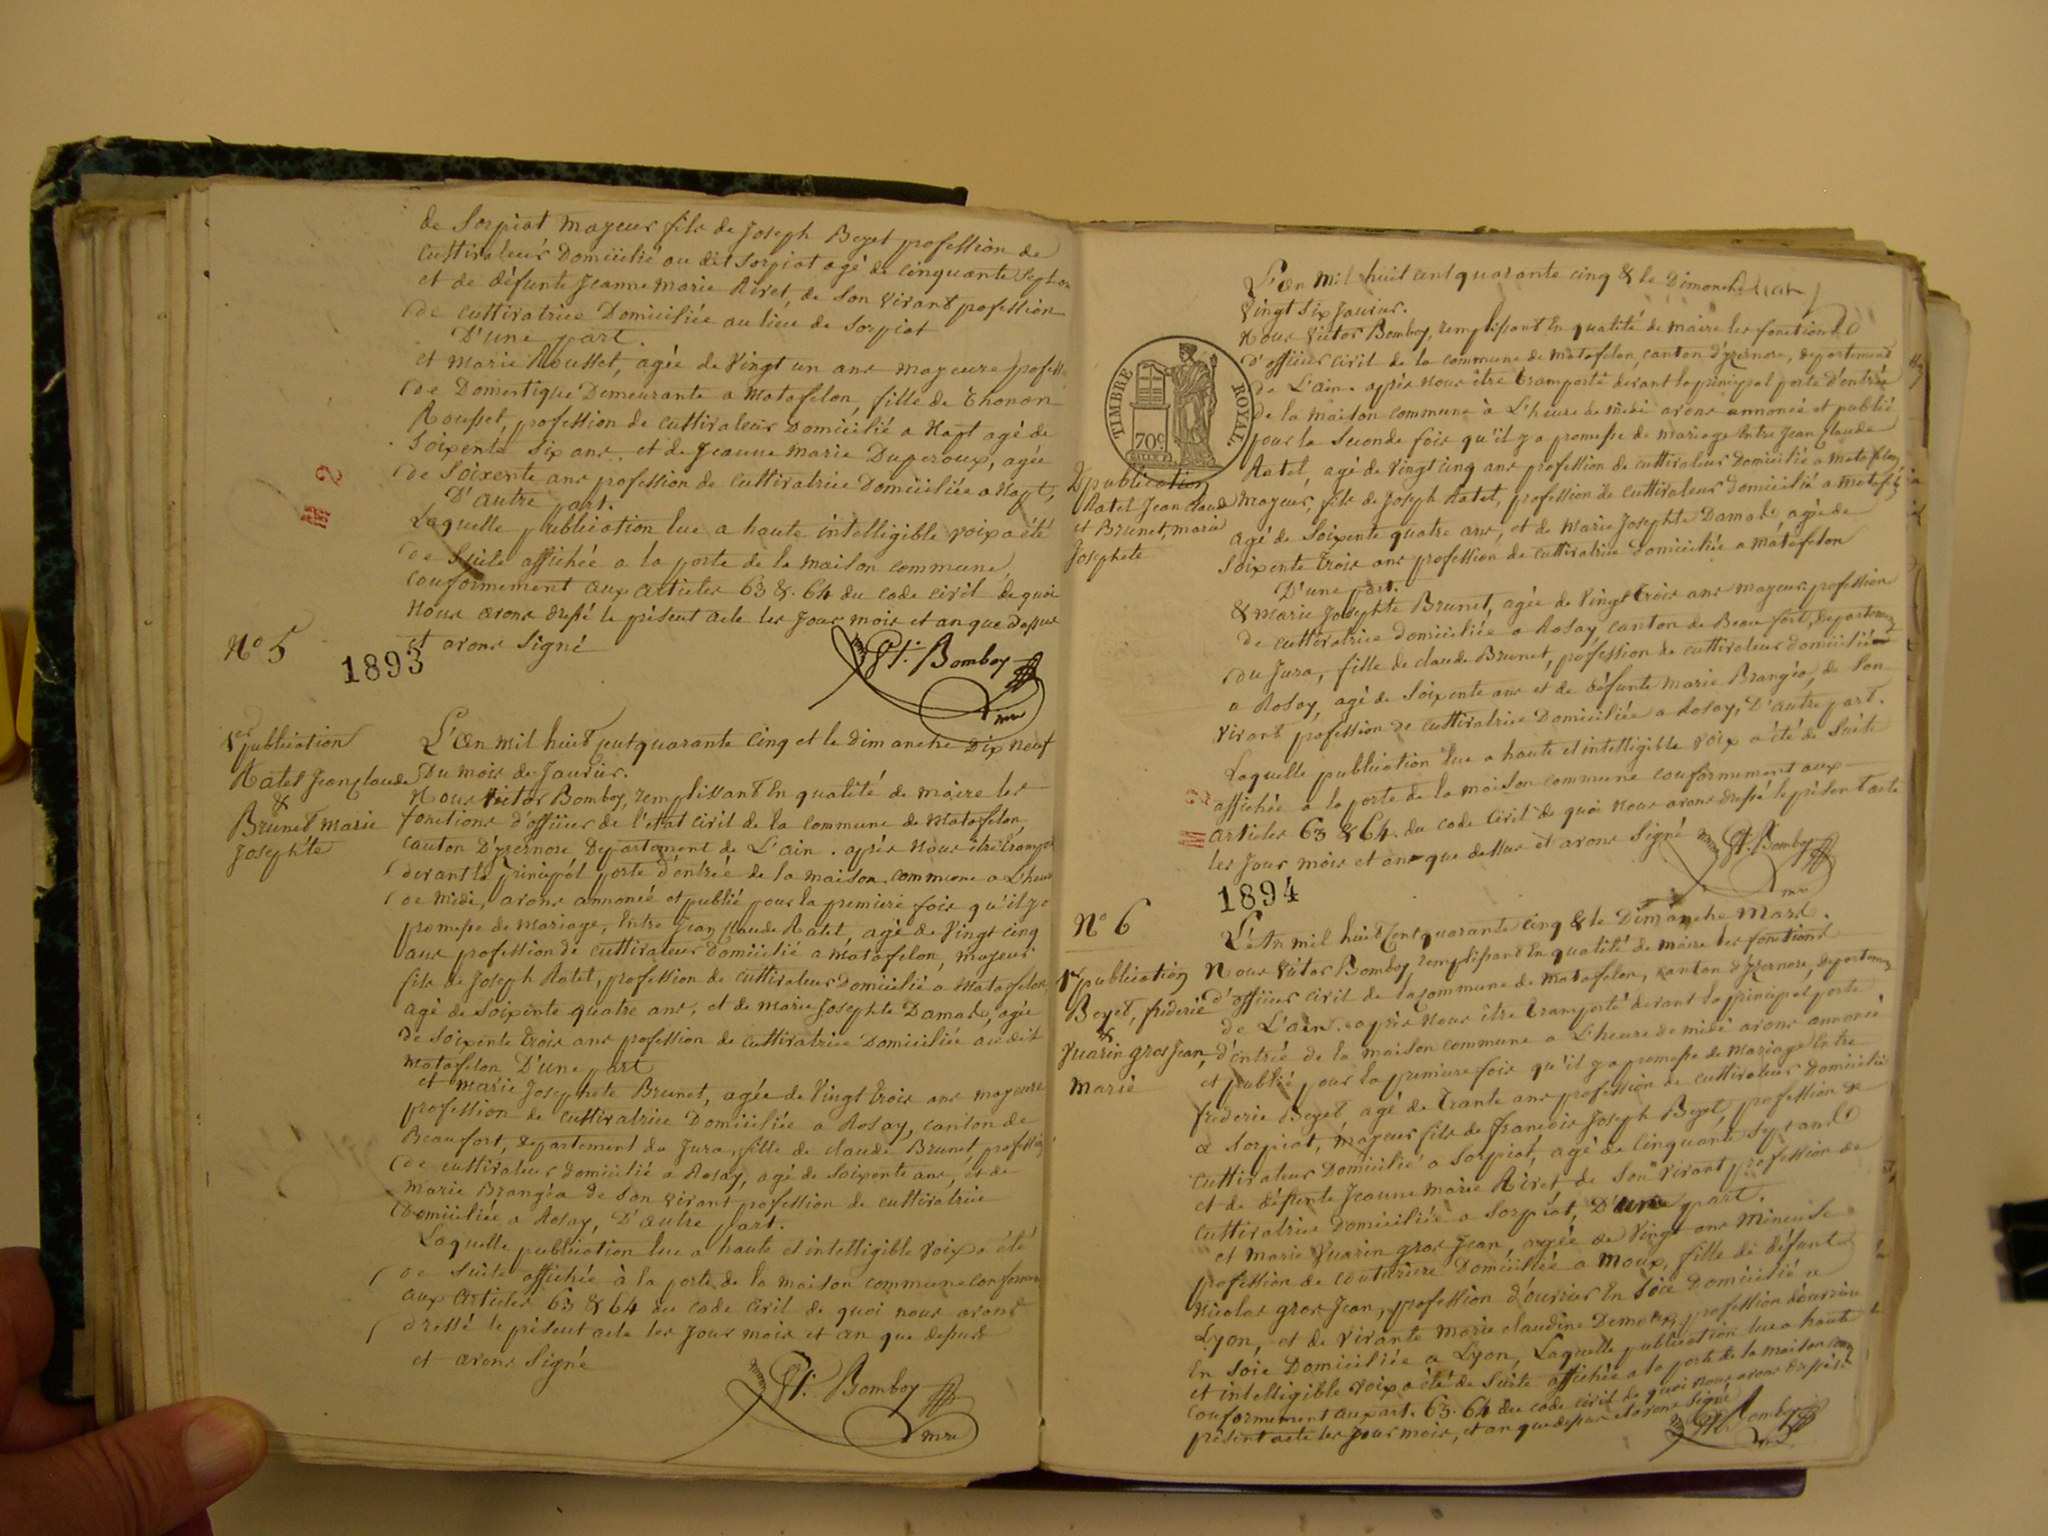 de Sorpiat mayeur fils de Joseph Beyet profession de
cultivateur Domicilié au dit Sorpiat agé de cinquante Sept
et de défunte Jeanne Marie Rivet, de son vivant profession
de cultivatrice Domiciliée au lieu de Sorpiat
D'une part.
et Marie Rousset, agée de Vingt un ans mayeure
de Domestique Demeurante a Matafelon, fille de Thonon
Rousset, profession de cultivateur Domicilié a Napt agé de
Soixente Six ans. et de Jeanne Marie Duperoux, agée
de Soixente ans profession de cultivatrice Domiciliée a Napt,
D'autre part.
Laquelle publication lue a haute intelligible voix a été
de Suite affichée a la porte de la maison commune,
conformement aux articles 63 & 64 du code civil de quoi
Nous avons dressé le présent acte les Jour mois et an que Dessus
et avons Signé
Bomboy
mre
2
No 5
1893
1er publication
Ratel Jean Claude
&
Brunet Marie
Josephte
L'an mil huit cent quarante Cinq et le dimanche Dix neuf
Du mois de Janvier.
Nous Victor Bomboy, remplissant En qualité de maire les
fonctions d'officier de l'etat civil de la commune de Matafelon,
canton D'yzernore Departement de L'ain. après nous être
devant la principal porte d'entrée de la maison commune a L'heure
de midi, avons annoncé et publié pour la premiere fois qu'il y a
promesse de mariage, Entre Jean Claude Ratel, agé de Vingt cinq
ans profession de cultivateur Domicilié a Matafelon, majeur
fils de Joseph Ratel, profession de cultivateur domicilié a Matafelon,
agé de soixente quatre ans, et de Marie Josephte Damal, agée
de Soixente Trois ans profession de cultivatrice Domiciliée au dit
Matafelon D'une part
et Marie Josephete Brunet, agée de Vingt Trois ans mayeure
profession de cultivatrice Domiciliée a Rosay, canton de
Beaufort, Departement du Jura, fille de claude Brunet, profession
de cultivateur domicilié a Rosay, agé de soixente ans, et de
Marie Brangéa de son vivant profession de cultivatrice
Domiciliée a Rosay, D'autre part.
Laquelle publication lue a haute et intelligible voix a été
de Suite affichée à la porte de la maison commune
aux articles 63 & 64 du code civil de quoi nous avons
dressé le présent acte les Jour mois et an que dessus
et avons Signé
Bomboy
mre
L'an mil huit cent quarante cinq & le Dimanche
Vingt Six Janvier.
Nous Victor Bomboy, remplissant En qualité de maire les fonctions
D'officier civil de la commune de Matafelon, canton d'yzernore, departement
de L'ain. après nous être transporté devant la principal porte d'entrée
de la maison commune à L'heure de midi avons annoncé et publié
pour la Seconde fois qu'il y a promesse de mariage Entre Jean Claude
Ratel, agé de Vingt cinq ans profession de cultivateur Domicilié a Matafelon
mayeur, fils de Joseph Ratel, profession de cultivateur domicilié a
agé de Soixente quatre ans, et de Marie Josephte Damal, agée de
Soixente Trois ans profession de cultivatrice domiciliée a Matafelon
D'une part.
& Marie Josephte Brunet, agée de Vingt trois ans mayeur profession
de cultivatrice domiciliée a Rosay, canton de Beaufort, Departement
du Jura, fille de claude Brunet, profession de cultivateur domicilié
a Rosay, agé de Soixente ans et de défunte Marie Brangéa, de Son
vivant profession de cultivatrice Domiciliée a Rosay, D'autre part.
Laquelle publication lue a haute et intelligible voix a été de Suite
affichée a la porte de la maison commune conformement aux
articles 63 & 64 du code civil de quoi nous avons dressé le présent acte
les Jour mois et an que dessus et avons Signé
Bomboy
mre
TIMBRE ROYAL
70c
2e publication
Ratel Jean Claude
et Brunet, marie
Josephete
3
1894
No 6
1er publication
Beyet, frideric
&
Vuarin gros Jean,
marie
L'an mil huit Cent quarante cinq & le Dimanche Mars.
Nous Victor Bomboy, remplissant En qualité de maire les fonctions
d'officier civil de la commune de Matafelon, canton d'Yzernore, departement
de L'ain. après nous être transporté devant la principal porte
d'entrée de la maison commune a L'heure de midi avons annoncé
et publié pour la premiere fois qu'il y a promesse de Mariage Entre
frideric Beyet agé de Trante ans profession de cultivateur Domicilié
a Sorpiat, mayeur fils de françois Joseph Beyet, profession de
cultivateur Domicilié a Sorpiat, agé de Cinquante Sept ans
et de défunte Jeanne marie Rivet de Son vivant profession de
cultivatrice domiciliée a Sorpiat, D'une part.
et Marie Vuarin gros Jean, agée de Vingt ans Mineuse
profession de couturiere Domiciliée a Moux, fille de défunt
Nicolas gros Jean, profession d'ouvrier En soie Domicilié a
Lyon, et de vivante Marie claudine profession d'ouvrière
En soie Domiciliée a Lyon, Laquelle publication lue a haute
et intelligible voix a été de Suite affichée a la porte de la maison
conformement aux art. 63. 64 du code civil de quoi nous avons dressé le
présent acte les Jour mois, et an que dessus et avons Signé
Bomboy